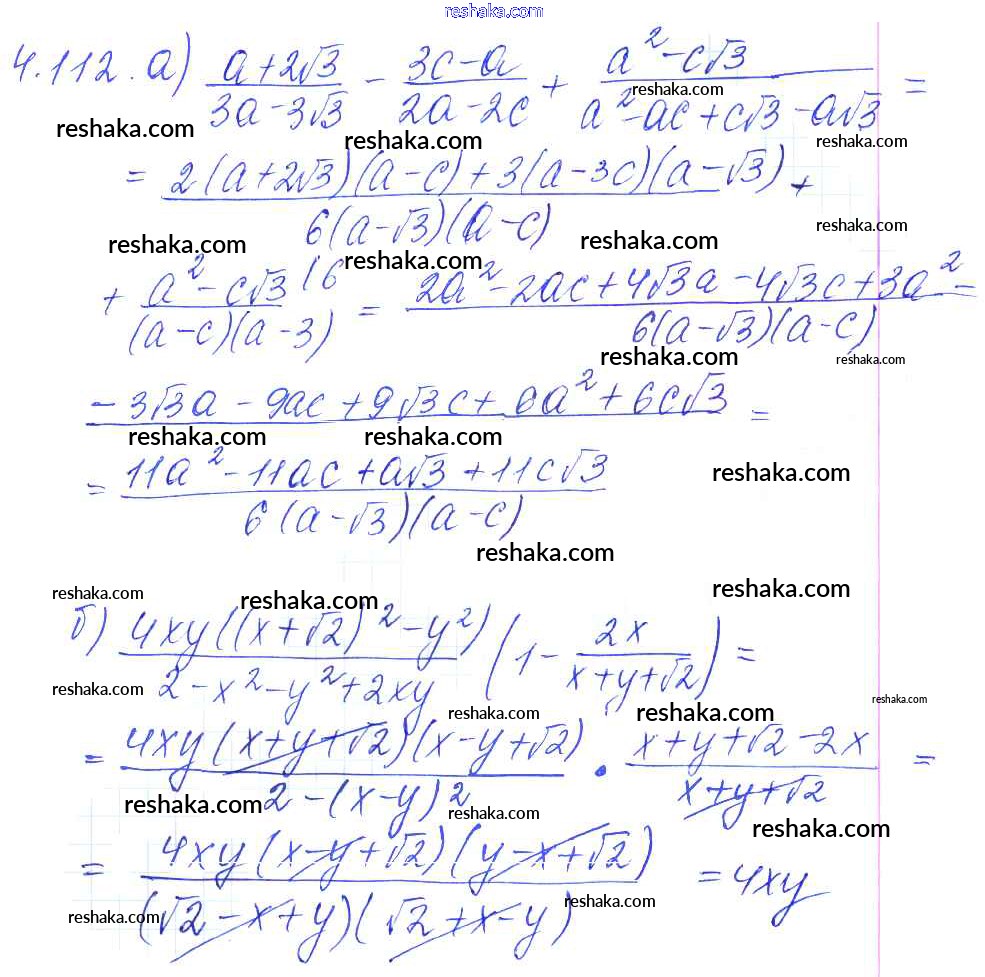 reshaka.com
4.112. а) (a+2√3)/(3a-3√3) - (3c-a)/(2a-2c) + (a²-c√3)/(a²-ac+c√3-a√3) =
reshaka.com reshaka.com reshaka.com reshaka.com
= (2(a+2√3)(a-c)+3(a-3c)(a-√3))/(6(a-√3)(a-c)) +
reshaka.com reshaka.com reshaka.com reshaka.com
+ (a²-c√3 (6)/((a-c)(a-3)) = (2a²-2ac+4√3a-4√3c+3a²-)/(6(a-√3)(a-c))
reshaka.com reshaka.com
-3√3a-9ac+9√3c+6a²+6c√3 =
reshaka.com reshaka.com
= (11a²-11ac+a√3+11c√3)/(6(a-√3)(a-c))
reshaka.com
reshaka.com
reshaka.com reshaka.com reshaka.com
б) (4xy((x+√2)²-y²))/(2-x²-y²+2xy) (1 - 2x/(x+y+√2)) =
reshaka.com reshaka.com reshaka.com reshaka.com
= (4xy(x+y+√2)(x-y+√2))/(2-(x-y)²) · (x+y+√2-2x)/(x+y+√2) =
reshaka.com reshaka.com reshaka.com
= (4xy(x-y+√2)(y-x+√2))/((√2-x+y)(√2+x-y)) = 4xy
reshaka.com reshaka.com